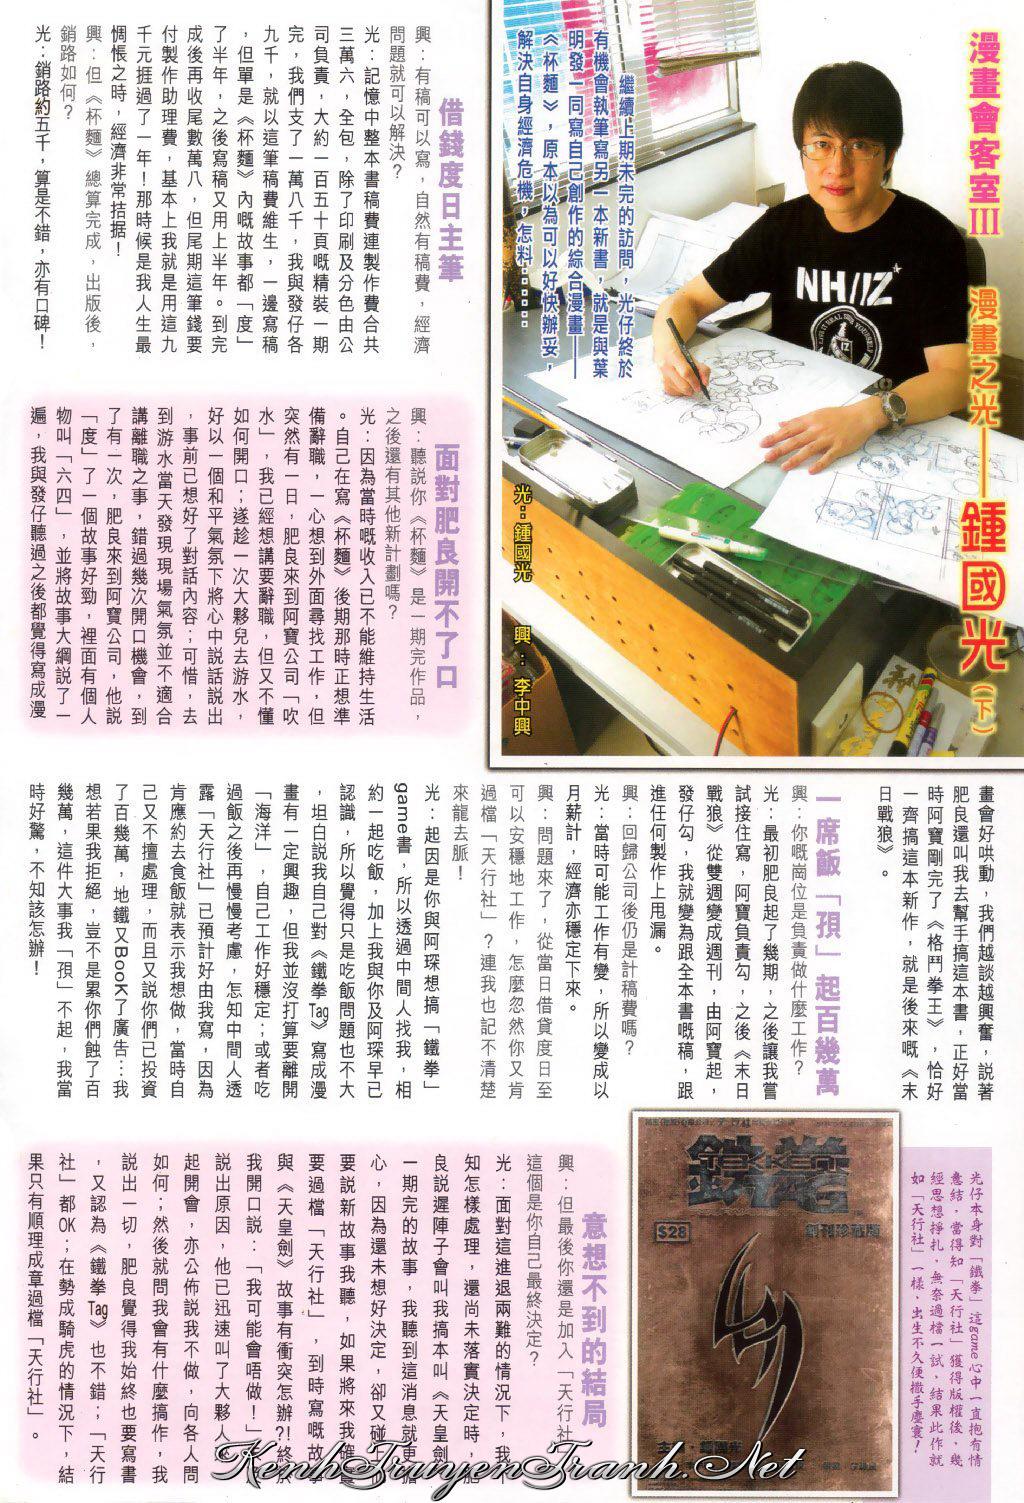 漫畫會客室III
漫畫之光——鍾國光(下)
繼續上期未完的訪問，光仔終於
有機會執筆寫另一本新書，就是與葉
明發一同寫自己創作的綜合漫畫——
《杯麵》，原本以為可以好快辦妥，
解決自身經濟危機，怎料……
NH/IZ
光：鍾國光　興：李中興
借錢度日主筆
興：有稿可以寫，自然有稿費，經濟
問題就可以解決？
光：記憶中整本書稿費連製作費合共
三萬六，全包，除了印刷及分色由公
司負責，大約一百五十頁嘅精裝一期
完，我們支了一萬八千，我與發仔各
九千，就以這筆稿費維生，一邊寫稿
，但單是《杯麵》內嘅故事都「度」
了半年，之後寫稿又用上半年。到完
成後再收尾數萬八，但尾期這筆錢要
付製作助理費，基本上我就是用這九
千元捱過了一年！那時候是我人生最
惆悵之時，經濟非常拮据！
興：但《杯麵》總算完成，出版後，
銷路如何？
光：銷路約五千，算是不錯，亦有口碑！
面對肥良開不了口
興：聽説你《杯麵》是一期完作品，
之後還有其他新計劃嗎？
光：因為當時嘅收入已不能維持生活
。自己在寫《杯麵》後期那時正想準
備辭職，一心想到外面尋找工作，但
突然有一日，肥良來到阿寶公司「吹
水」，我已經想講要辭職，但又不懂
如何開口；遂趁一次大夥兒去游水，
好以一個和平氣氛下將心中説話説出
，事前已想好了對話內容；可惜，去
到游水當天發現現場氣氛並不適合
講離職之事，錯過幾次開口機會，到
了有一次，肥良來到阿寶公司，他説
「度」了一個故事好勁，裡面有個人
物叫「六四」，並將故事大綱説了一
遍，我與發仔聽過之後都覺得寫成漫
畫會好哄動，我們越談越興奮，説著
肥良還叫我去幫手搞這本書，正好當
時阿寶剛完了《格鬥拳王》，恰好
一齊搞這本新作，就是後來嘅《末
日戰狼》。
一席飯「孭」起百幾萬
興：你嘅崗位是負責做什麼工作？
光：最初肥良起了幾期，之後讓我嘗
試接住寫，阿寶負責勾，之後《末日
戰狼》從雙週變成週刊，由阿寶起，
發仔勾，我就變為跟全本書嘅稿，跟
進任何製作上甩漏。
興：回歸公司後仍是計稿費嗎？
光：當時可能工作有變，所以變成以
月薪計，經濟亦穩定下來。
興：問題來了，從當日借貸度日至
可以安穩地工作，怎麼忽然你又肯
過檔「天行社」？連我也記不清楚
來龍去脈！
光：起因是你與阿琛想搞「鐵拳」
game書，所以透過中間人找我，相
約一起吃飯，加上我與你及阿琛早已
認識，所以覺得只是吃飯問題也不大
，坦白説我自己對《鐵拳Tag》寫成漫
畫有一定興趣，但我並沒打算要離開
「海洋」，自己工作好穩定；或者吃
過飯之後再慢慢考慮，怎知中間人透
露「天行社」已預計好由我寫，因為
肯應約去食飯就表示我想做，當時自
己又不擅處理，而且又説你們已投資
了百幾萬，地鐵又Book了廣告…我
想若果我拒絕，豈不是累你們蝕了百
幾萬，這件大事我「孭」不起，我當
時好驚，不知該怎辦！
光仔本身對「鐵拳」這game心中一直抱有情
意結，當得知「天行社」獲得版權後，幾
經思想掙扎，無奈過檔一試，結果此作就
如「天行社」一樣，出生不久便撒手塵寰！
鐵拳
TEKKEN
TAG
$28
創刊珍藏版
主筆·鍾國光
意想不到的結局
興：但最後你還是加入「天行社」
這個是你自己最終決定？
光：面對這進退兩難的情況下，我不
知怎樣處理，還尚未落實決定時，肥
良説遲陣子會叫我搞本叫《天皇劍》
一期完的故事，我聽到這消息就更擔
心，因為還未想好決定，卻又碰正他
要説新故事我聽，如果將來我確實
要過檔「天行社」，到時寫嘅故事
與《天皇劍》故事有衝突怎辦?!終於
我開口説：「我可能會唔做！」
説出原因，他已迅速叫了大夥人一
起開會，亦公佈説我不做，向各人問
如何；然後就問我會有什麼搞作，我
説出一切，肥良覺得我始終也要寫書
，又認為《鐵拳Tag》也不錯；「天行
社」都OK；在勢成騎虎的情況下，結
果只有順理成章過檔「天行社」。
KenhTruyenTranh.Net